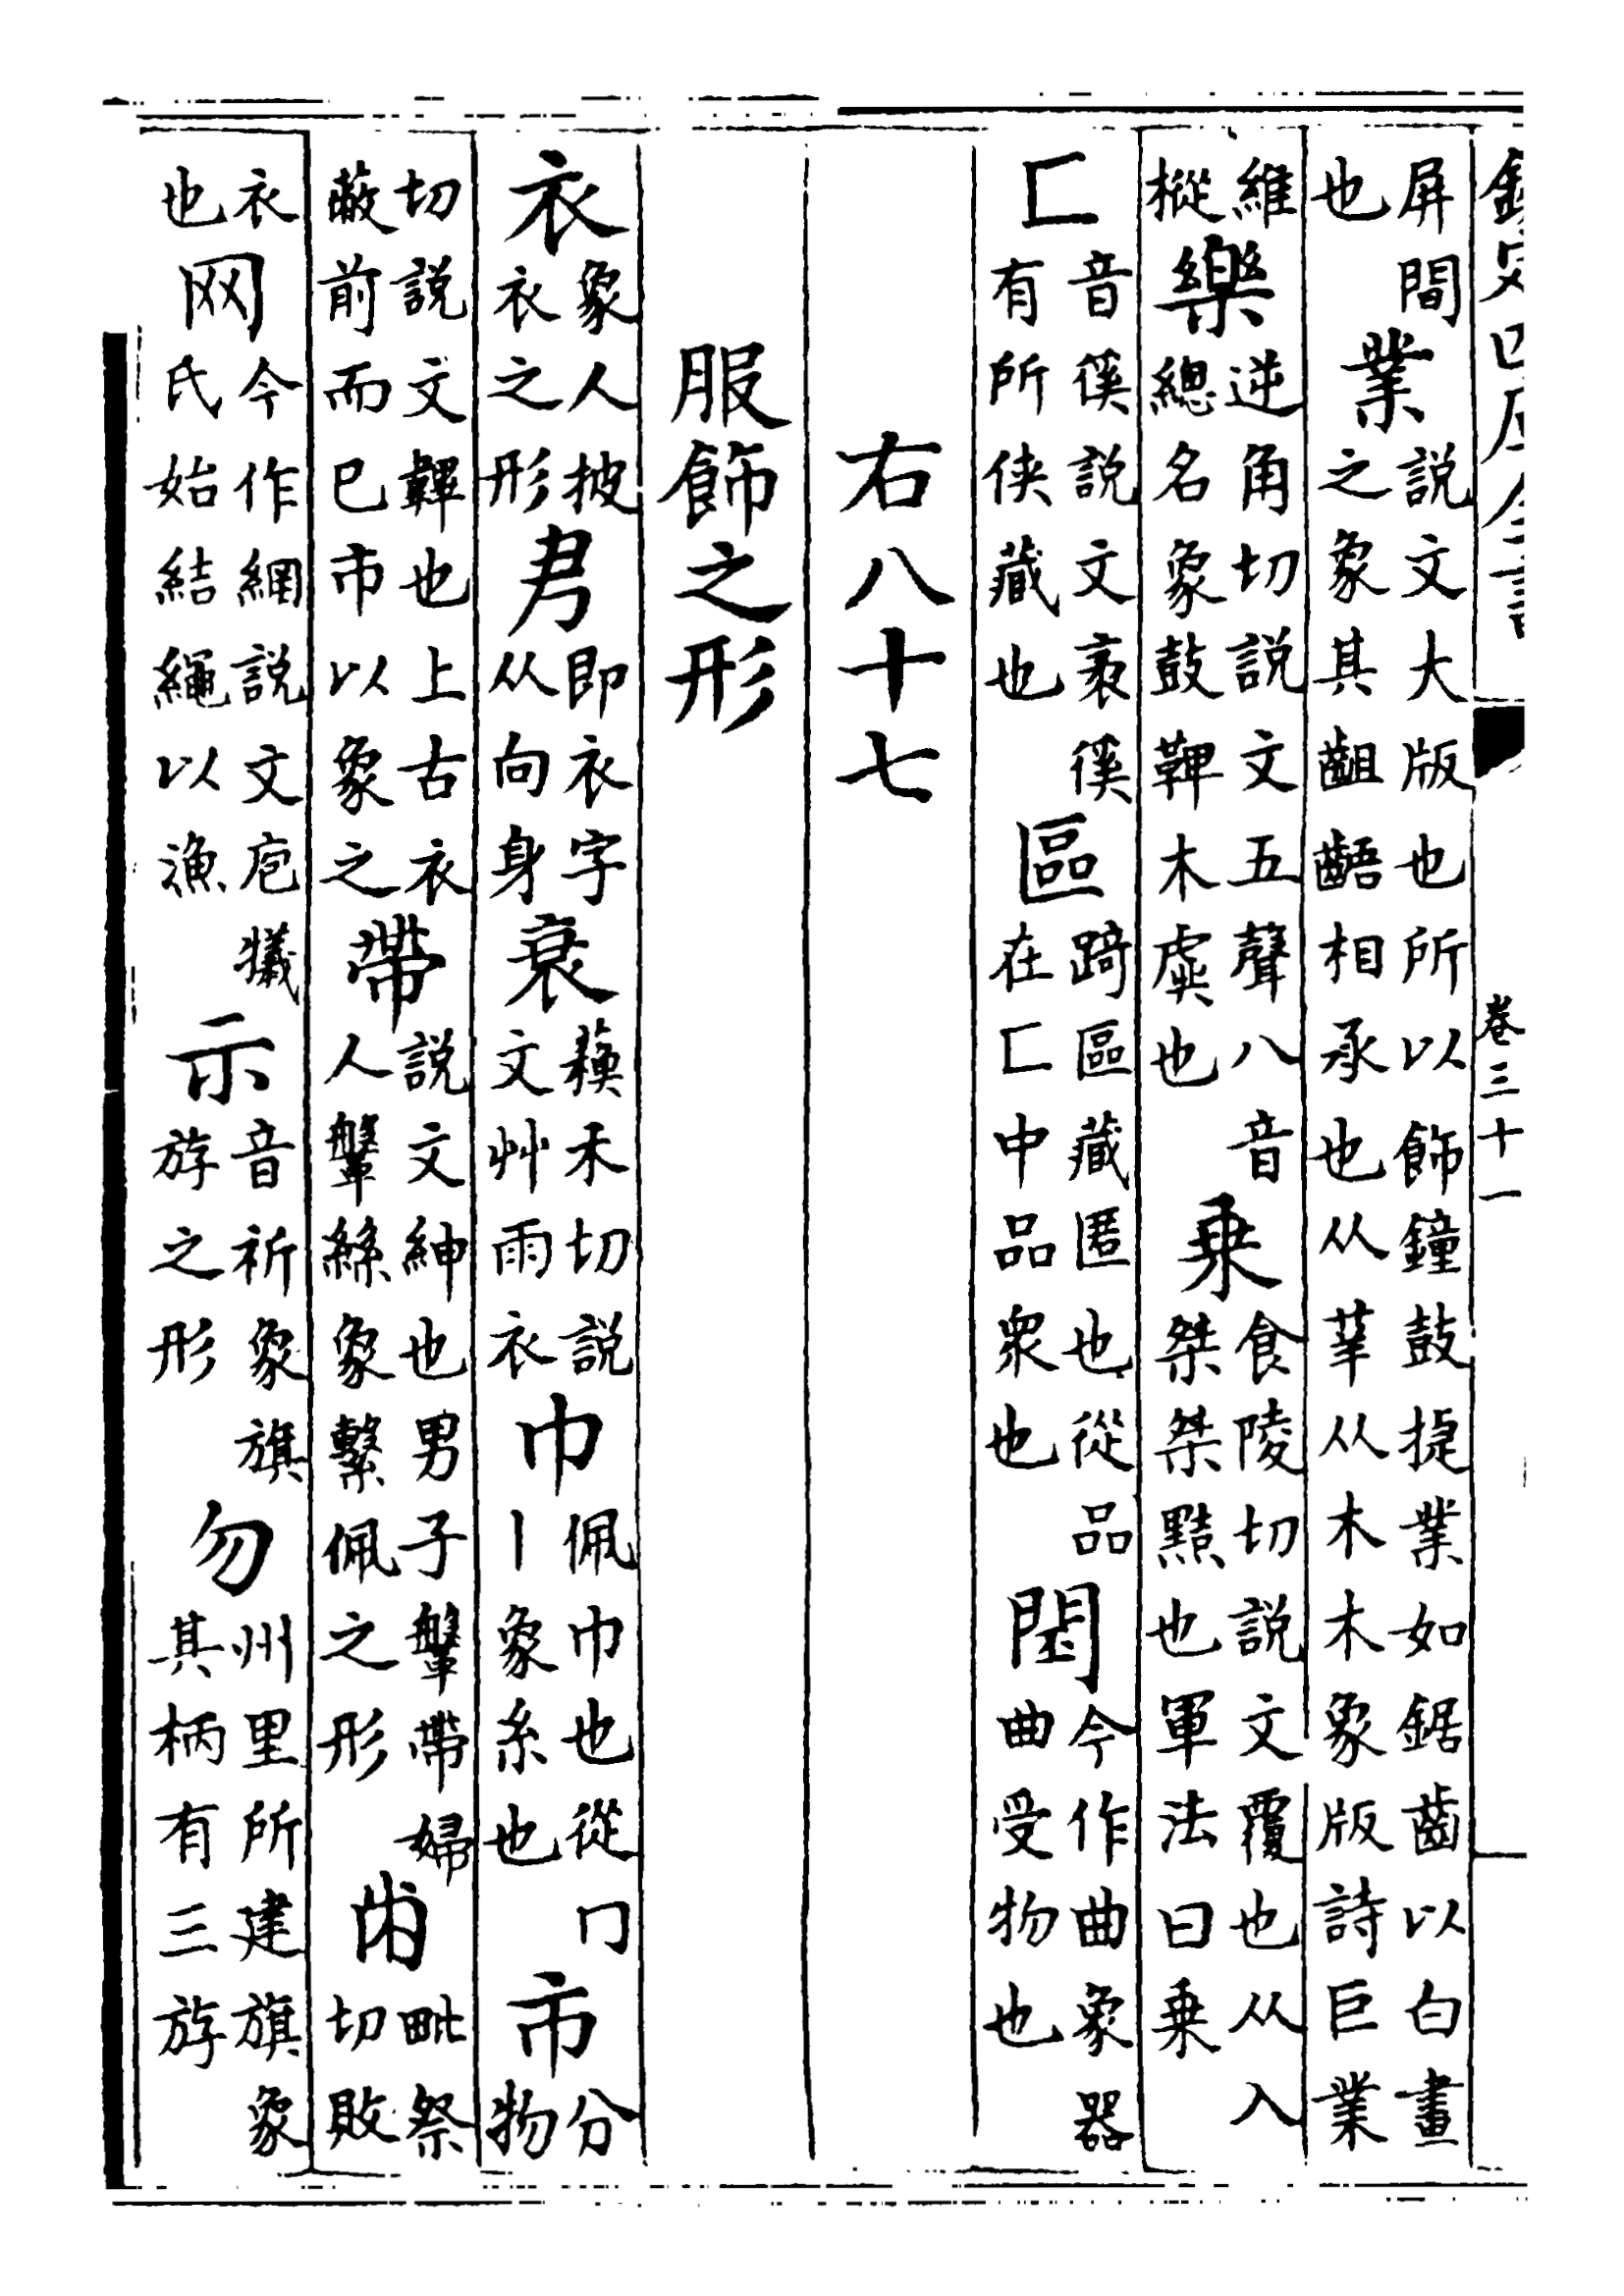 欽定四庫全書 卷三十一
屏間也業說文大版也所以飾鐘鼓捷業如鋸齒以白畫之象其齟齬相承也从丵从木木象版詩巨業
維樅樂逆角切說文五聲八音總名象鼓鞞木虡也乗食陵切說文覆也从入桀桀黠也軍法曰乗
匸音徯說文衺徯有所侠藏也區踦區藏匿也從品在匸中品衆也今作曲曲象器曲受物也
右八十七
服飾之形
衣象人披衣衣之形㐆即衣字从向身衰蘓禾切說文艸雨衣巾佩巾也從冂丨象糸也巿分物
切說文韠也上古衣蔽前而已巿以象之帶說文紳也男子鞶帶婦人鞶絲象繫佩之形㡀毗祭切敗
衣也网今作網說文庖犧氏始結繩以漁示音祈象旗斿之形勿州里所建旗象其柄有三斿